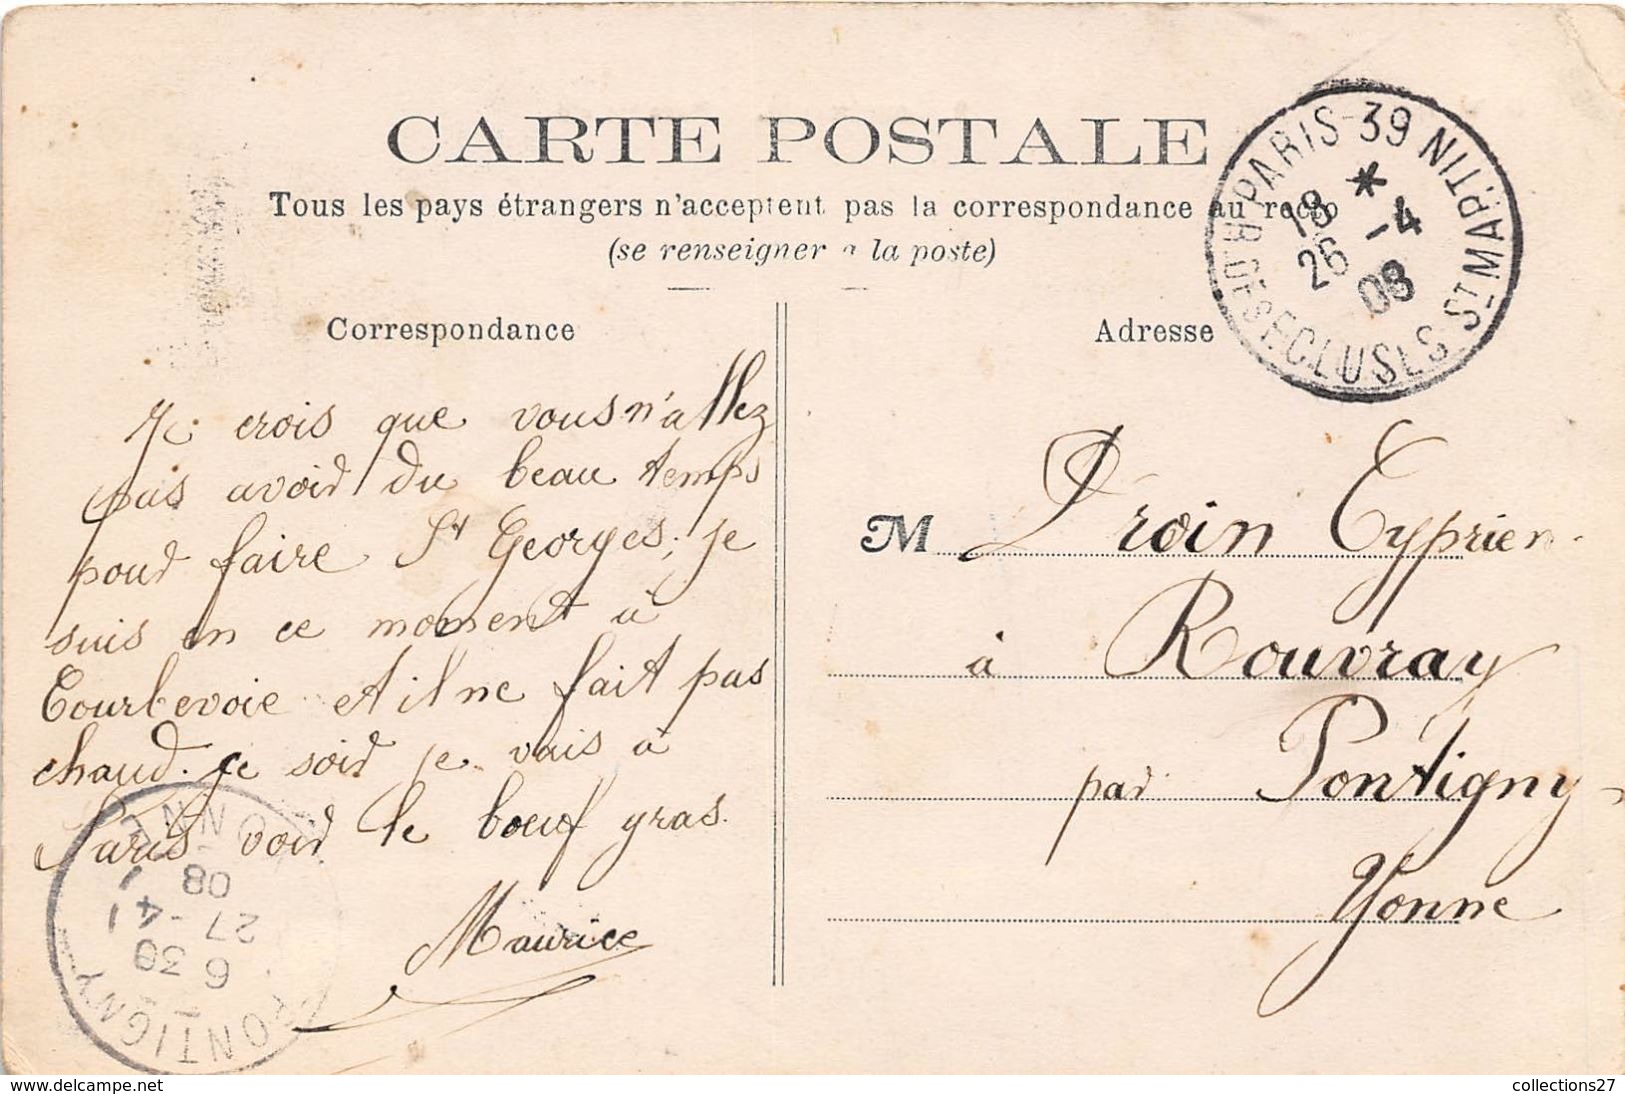 CARTE POSTALE
Tous les pays étrangers n'acceptent pas la correspondance au recto
(se renseigner a la poste)
PARIS-39 R. DES ECLUSES ST MARTIN
18 *
26 -4
08
Correspondance
Je crois que vous n'allez
pas avoir du beau temps
pour faire St Georges; je
suis en ce moment à
Courbevoie et il ne fait pas
chaud. ce soir je vais à
Paris voir le boeuf gras.
Maurice
Adresse
M Droin Cyprien
à Rouvray
par Pontigny
Yonne
PONTIGNY YONNE
6 30
27 -4
08
www.delcampe.net
collections27